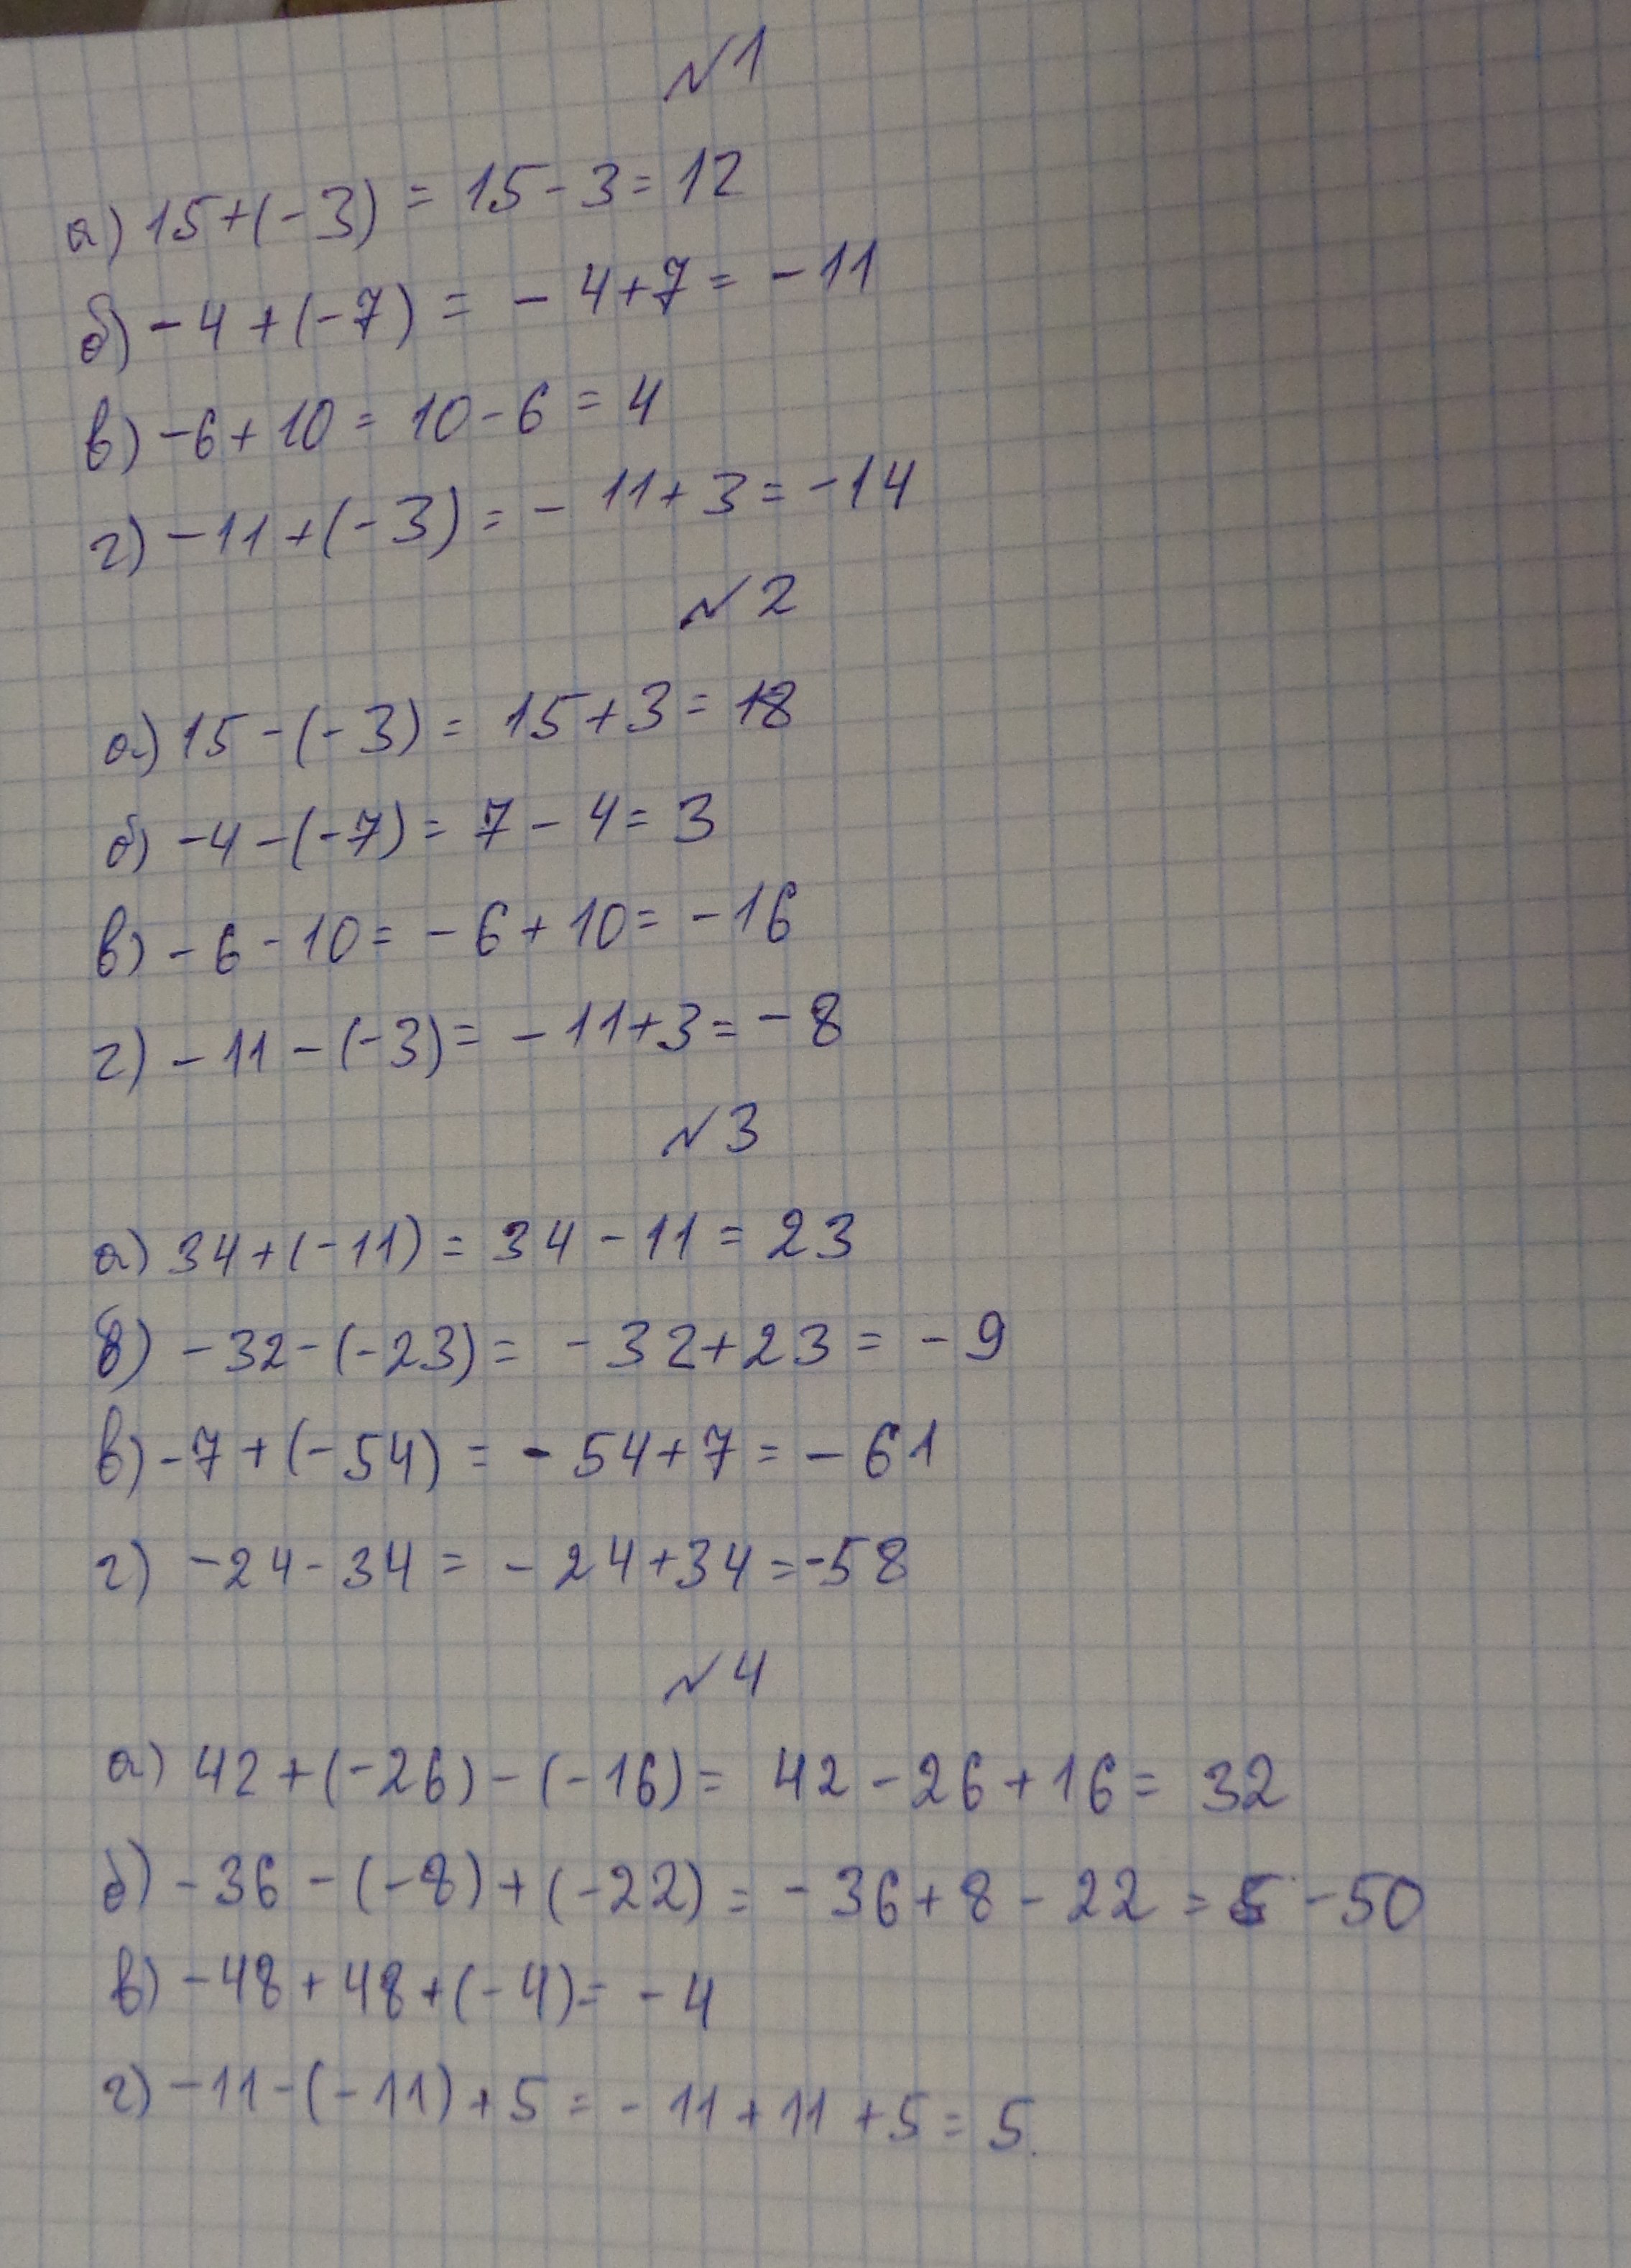 №1
а) 15+(-3) = 15-3=12
б) -4+(-7) = -4+7= -11
в) -6+10= 10-6=4
г) -11+(-3)= -11+3=-14
№2
а) 15-(-3)= 15+3=18
б) -4-(-7)= 7-4=3
в) -6-10= -6+10= -16
г) -11-(-3)= -11+3= -8
№3
а) 34+(-11) = 34-11=23
б) -32-(-23)= -32+23= -9
в) -7+(-54) = -54+7= -61
г) -24-34 = -24+34=-58
№4
а) 42+(-26)-(-16)= 42-26+16= 32
б) -36-(-8)+(-22)= -36+8-22= -50
в) -48+48+(-4)= -4
г) -11-(-11)+5= -11+11+5=5.